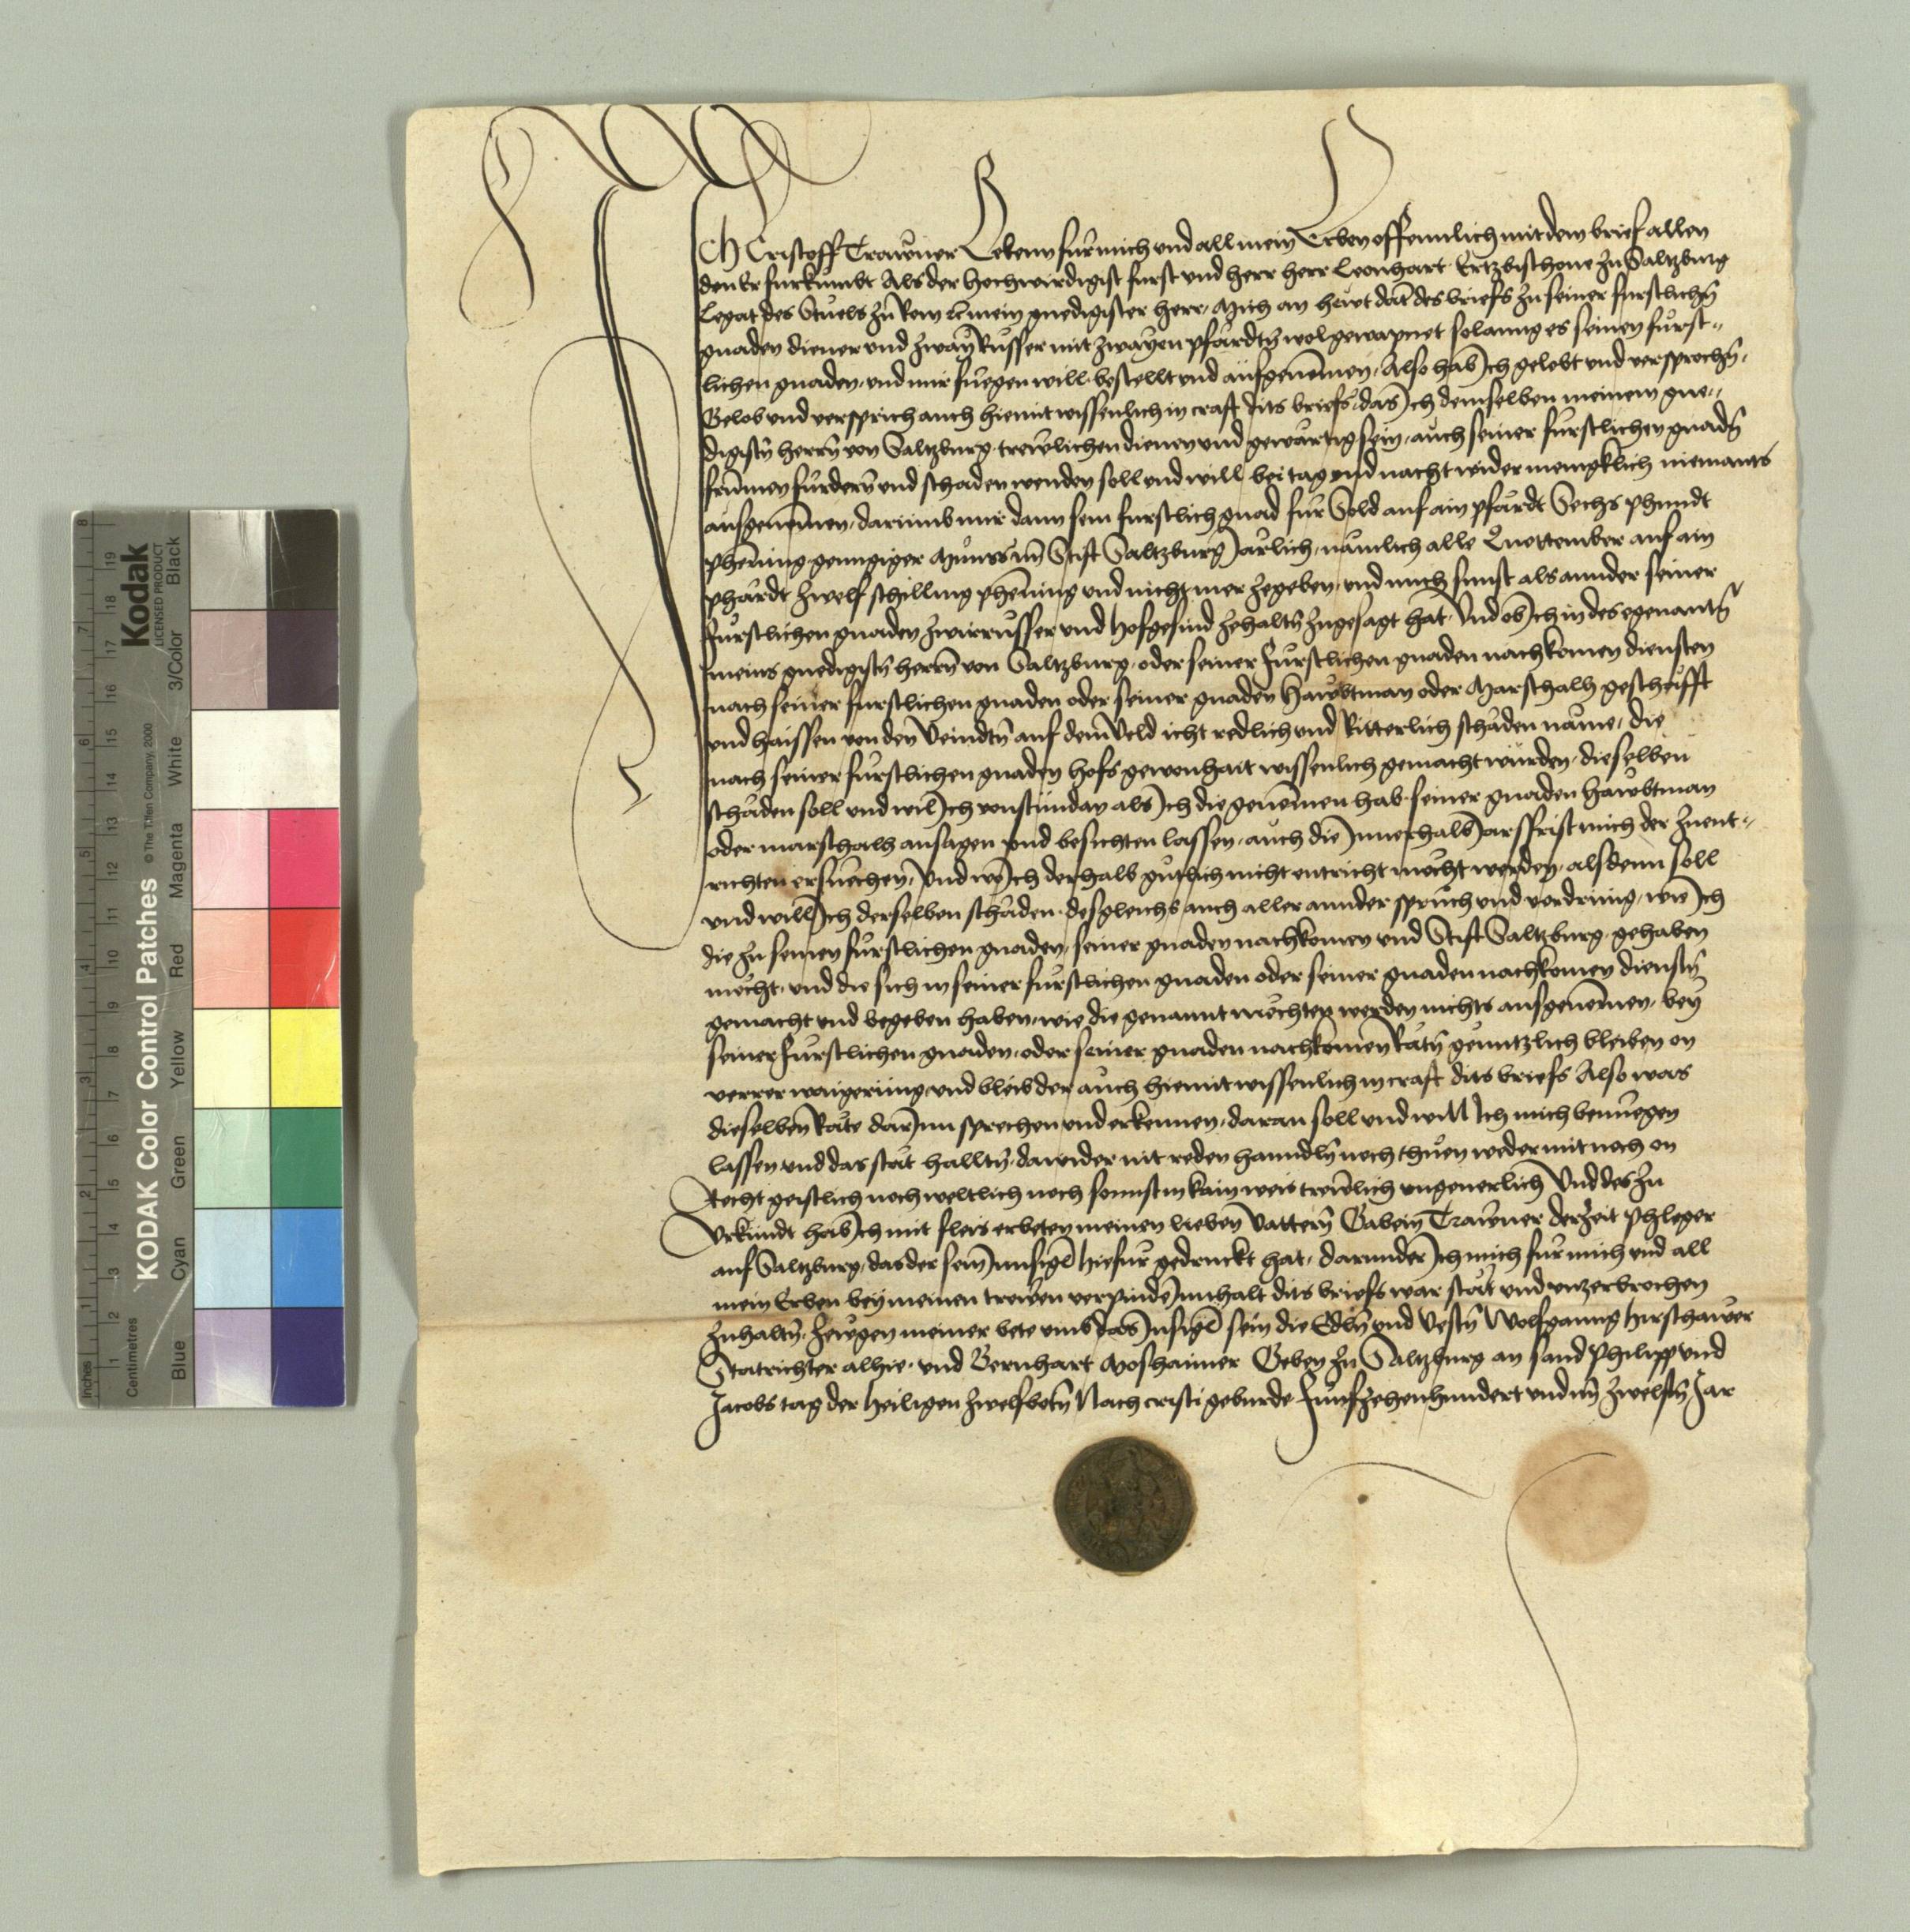 Ich Cristoff Trawner Bekenn für mich und all mein Erben offennlich mit dem brief allen
den Er furkumbt Als der Hochwirdigist furst und herr herr Leonhart Ertzbischove zu Saltzburg
Legat des Stuels zu Rom etc mein gnedigister herr, Mich an hewt dat des briefs zu seiner furstlichn
gnaden diener und zway Russer mit zwayen pfärdtn wolgewapnet solanng es seinen fürst-
lichen gnaden, und mir fuegen will, bestellt und aufgenomen, Also hab Ich gelobt und versprochn,
Gelob und versprich auch hiemit wissenlich in craft dits briefs, das Ich demselben meinem gne-
digistn herrn von Saltzburg, trewlichen dienen und gewärtig sein, auch seiner fürstlichen gnadn
frumen fürdern und schaden wenden soll und will, bei tag und nacht wider menigklich niemants
ausgenomen, darumb mir dann sein furstlich gnad für Sold auf ain pfärdt Sechs phundt
phening genngiger Munss im Stift Saltzburg Järlich, nämlich alle Quottember auf ain
phärdt zwelf schilling phening und nicht mer zegeben, und mich sunst als annder seiner
fürstlichen gnaden zwirrusser und Hofgesind zehaltn zugesagt hat, Und ob Ich in des egenantn
meins gnedigistn herrn von Saltzburg, oder seiner Fürstlichen gnaden nachkomen diensten
nach seiner fürstlichen gnaden oder seiner gnaden Hawbtman oder Marschalh gescheifft
und haissen von den Veindtn auf dem Veld icht redlich und Ritterlich schäden näme, die
nach seiner fürstlichen gnaden hofs gewonhait wissenlich gemacht würden, dieselben
schäden soll und wil Ich vonstundan als Ich die genomen hab, seiner gnaden hawbtman
oder marschalh ansagen und besichten lassen, auch die Innerhalb Jarsfrist mich der zuent-
richten ersuechen, Und wo Ich derhalb gütlich nicht entricht möcht werden, alsdenn soll
und will Ich derselben schäden, desgleichs auch aller annder sprüch und vordrung, wie Ich
die zu seinen fürstlichen gnaden, seiner gnaden nachkomen und Stift Saltzburg, gehaben
möcht, und die sich in seiner fürstlichen gnaden oder seiner gnaden nachkomen dienstn
gemacht und begeben haben, wie die genannt möchten werden nichts ausgenomen, bey
seiner Fürstlichen gnaden, oder seiner gnaden nachkomen Rätn genntzlich bleiben on
verrer waigerung und bleib der auch hiemit wissenlich in craft dits briefs Also was
dieselben Räte darInn sprechen und erkennen, daran soll und will Ich mich benüegen
lassen und das stät halltn, dawider nit reden hanndln noch thuen weder mit noch on
Recht geistlich noch weltlich noch sonnst in kain weis trewlich ungeverlich Und des zu
Urkundt hab Ich mit fleis erbeten meinen lieben Vattern Gabein Trawner derzeit Phleger
auf Saltzburg, das der sein Innsigl hiefür gedruckt hat, darunder Ich mich für mich und all
mein Erben bey meinen trewen verpinde Innhalt dits briefs war stät und unzerbrochen
zuhaltn, Zewgen meiner bete umb das Insigl sein die Edln und Vestn Wolfganng Hirschawer
Statrichter alhie, und Bernhart Moshaimer Geben zu Saltzburg an sand Philipp und
Jacobs tag der heiligen zwelfbotn Nach cristi geburde Funfzehenhundert und im zwelftn Jar
KODAK Color Control Patches © The Tiffen Company, 2000
Kodak
LICENSED PRODUCT
Inches
Centimetres
Blue Cyan Green Yellow Red Magenta White 3/Color Black